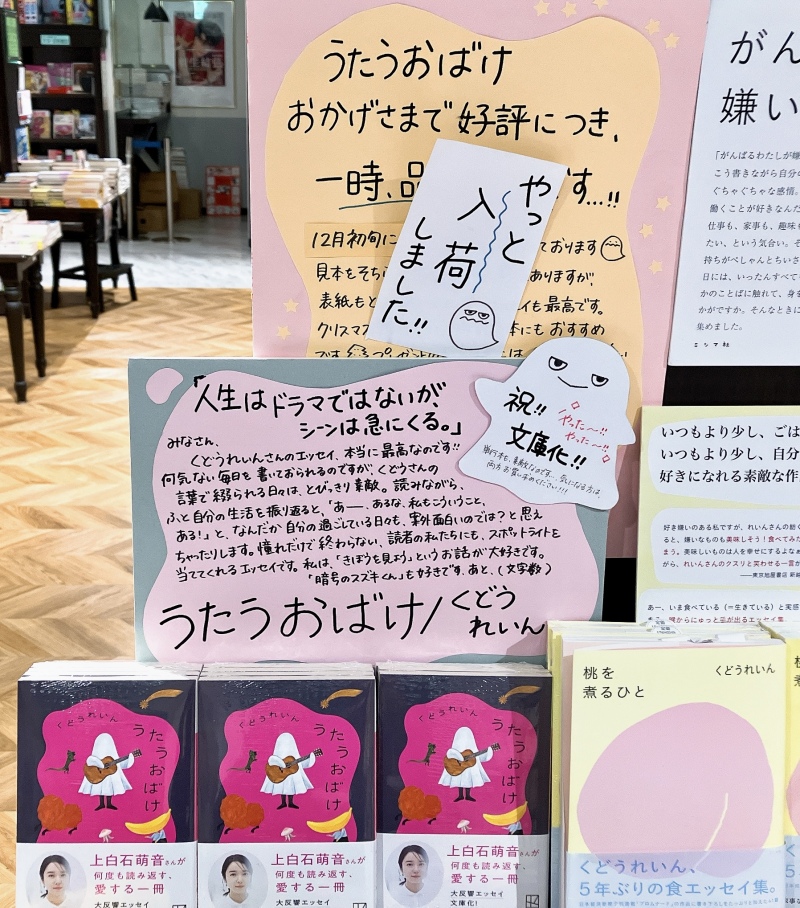 うたうおばけ
おかげさまで好評につき、
一時、品
す…!!
やっと
入荷
しました!!
12月初旬に
ております
見本をそちら
ありますが、
表紙もと
イも最高です。
クリスマス
にもおすすめ
です
「人生はドラマではないが、
シーンは急にくる。」
みなさん、
くどうれいんさんのエッセイ、本当に最高なのです!!
何気ない毎日を書いておられるのですが、くどうさんの
言葉で綴られる日々は、とびっきり素敵。読みながら、
ふと自分の生活を振り返ると、「あー、あるな、私もこういうこと、
ある!」と、なんだか自分の過ごしている日々も、案外面白いのでは?と思え
ちゃったりします。憧れだけで終わらない、読者の私たちにも、スポットライトを
当ててくれるエッセイです。私は、「きぼうを見よう」というお話が大好きです。
「暗号のスズキくん」も好きです。あと、(文字数)
うたうおばけ/くどう
れいん
祝!!
文庫化!!
やった〜!!
やった〜!!
単行本も、素敵なのです…気になる方は、
両方お買い求めください!!!
がん
嫌い
「がんばるわたしが嫌
こう書きながら自分の
ぐちゃぐちゃな感情。
働くことが好きなんだ
仕事も、家事も、趣味も
たい、という気合い。そ
持ちがぺしゃんとちいさ
日には、いったんすべて
かのことばに触れて、身を
かがですか。そんなときに
集めました。
ミシマ社
いつもより少し、ごは
いつもより少し、自分
好きになれる素敵な作
好き嫌いのある私ですが、れいんさんの紡ぐ
ると、嫌いなものも美味しそう!食べてみた
まう。美味しいものは人を幸せにするよなぁ
がら、れいんさんのクスリと笑わせる一言が
あー、いま食べている(=生きている)と実感
くどうれいん
うたうおばけ
上白石萌音さんが
何度も読み返す、
愛する一冊
大反響エッセイ
くどうれいん
うたうおばけ
上白石萌音さんが
何度も読み返す、
愛する一冊
大反響エッセイ
くどうれいん
うたうおばけ
上白石萌音さんが
何度も読み返す、
愛する一冊
大反響エッセイ
文庫化!
桃を
煮るひと
くどうれいん
くどうれいん、
5年ぶりの食エッセイ集。